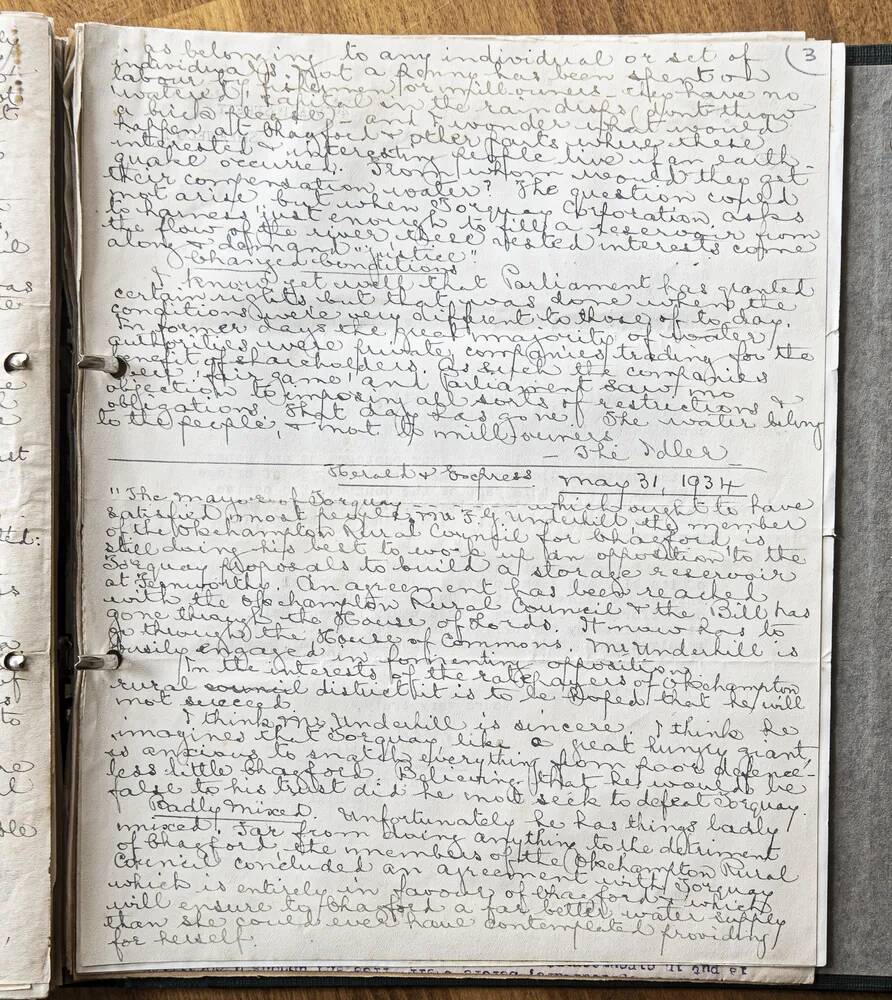 3
as belonging to any individual or set of
individuals. Not a penny has been spent on
labour, fishermen or mill owners. They have no
vested capital in the raindrops (don't throw
a brick please,) and I wonder what would
happen at Chagford & other parts where these
interested & interesting people live if an earth-
quake occurred. From whom would they get
their compensation water? The question could
not arise but when Torquay Corporation asks
to harness just enough to fill a reservoir from
the flow of the river these vested interests come
along & demand "justice"
Changed Conditions
I know yet well that Parliament has granted
certain rights but that was done when the
conditions were very different to those of to day.
In former days the great majority of water
authorities were private companies trading for the
benefit of shareholders. As such the companies
were 'fair game' and Parliament saw no
objection to imposing all sorts of restrictions &
obligations. That day has gone. The water belong
to the people, & not to mill owners
- The Idler -
Herald & Express May 31, 1934
"The mayor of Torquay which ought to have
satisfied most people, Mr F.G. Underhill, the member
of the Okehampton Rural Council for Chagford is
still doing his best to work up an opposition to the
Torquay proposals to build a storage reservoir
at Fernworthy. An agreement has been reached
with the Okehampton Rural Council & the Bill has
gone through the House of Lords. It now has to
go through the House of Commons. Mr Underhill is
busily engaged in fomenting opposition.
In the interests of the ratepayers of Okehampton
rural council district it is to be hoped that he will
not succeed
I think Mr Underhill is sincere. I think he
imagines that Torquay, like a great hungry giant,
is anxious to snatch everything from poor defence-
less little Chagford. Believing that he would be
false to his trust did he not seek to defeat Torquay.
Badly Mixed. Unfortunately he has things badly
mixed. Far from doing anything to the detriment
of Chagford, the members of the Okehampton Rural
Council concluded an agreement with Torquay
which is entirely in favour of Chagford & which
will ensure to Chagford a far better water supply
than she could ever have contemplated providing
for herself.